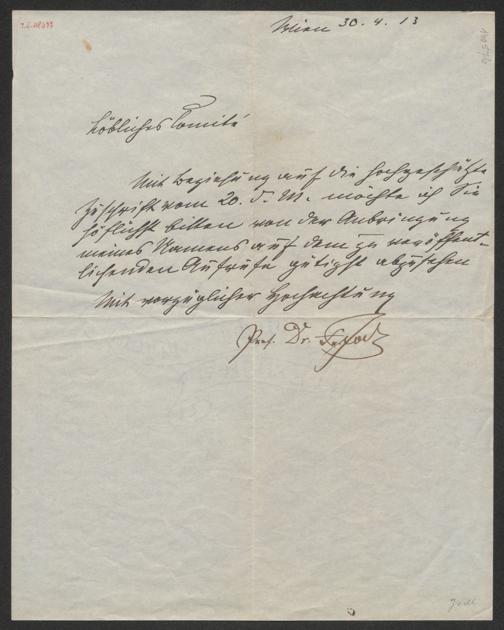 Wien 30. 4. 13
Löbliches Comité
Mit Beziehung auf die hochgeschätzte
Zuschrift vom 20. d. M. möchte ich Sie
höflichst bitten von der Anbringung
meines Namens auf dem zu veröffent-
lichenden Aufrufe gütigst abzusehen
Mit vorzüglicher Hochachtung
Prof. Dr. Fr. Jodl
Jodl